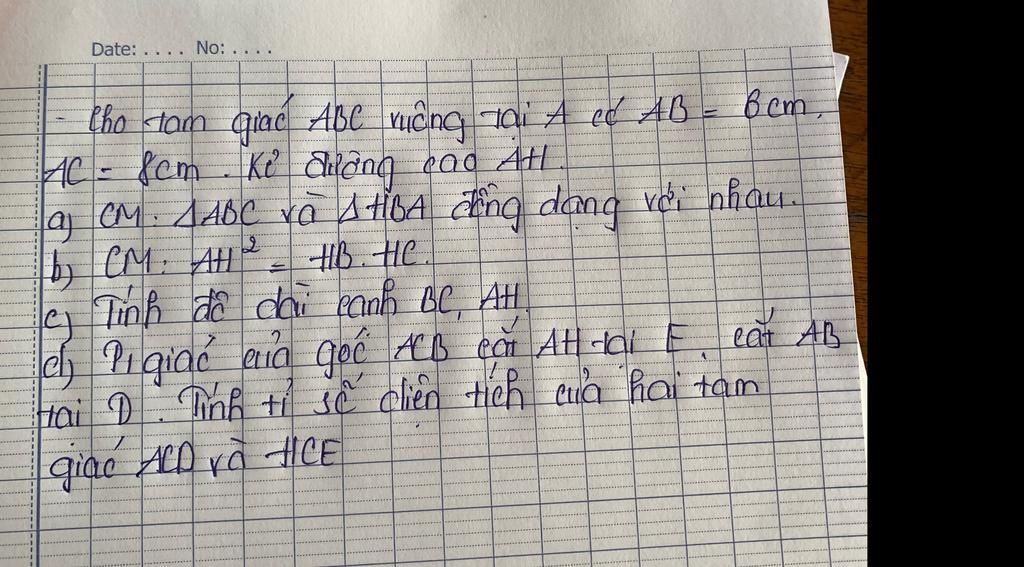 Date: . . . . No: . . . .
- Cho tam giác ABC vuông tại A có AB = 6cm,
AC = 8cm. Kẻ đường cao AH.
a) CM: ΔABC và ΔHBA đồng dạng với nhau.
b) CM: AH² = HB. HC.
c) Tính độ dài cạnh BC, AH
d) P,giác của góc ACB cắt AH tại E, cắt AB
tại D. Tính tỉ số diện tích của hai tam
giác ACD và HCE